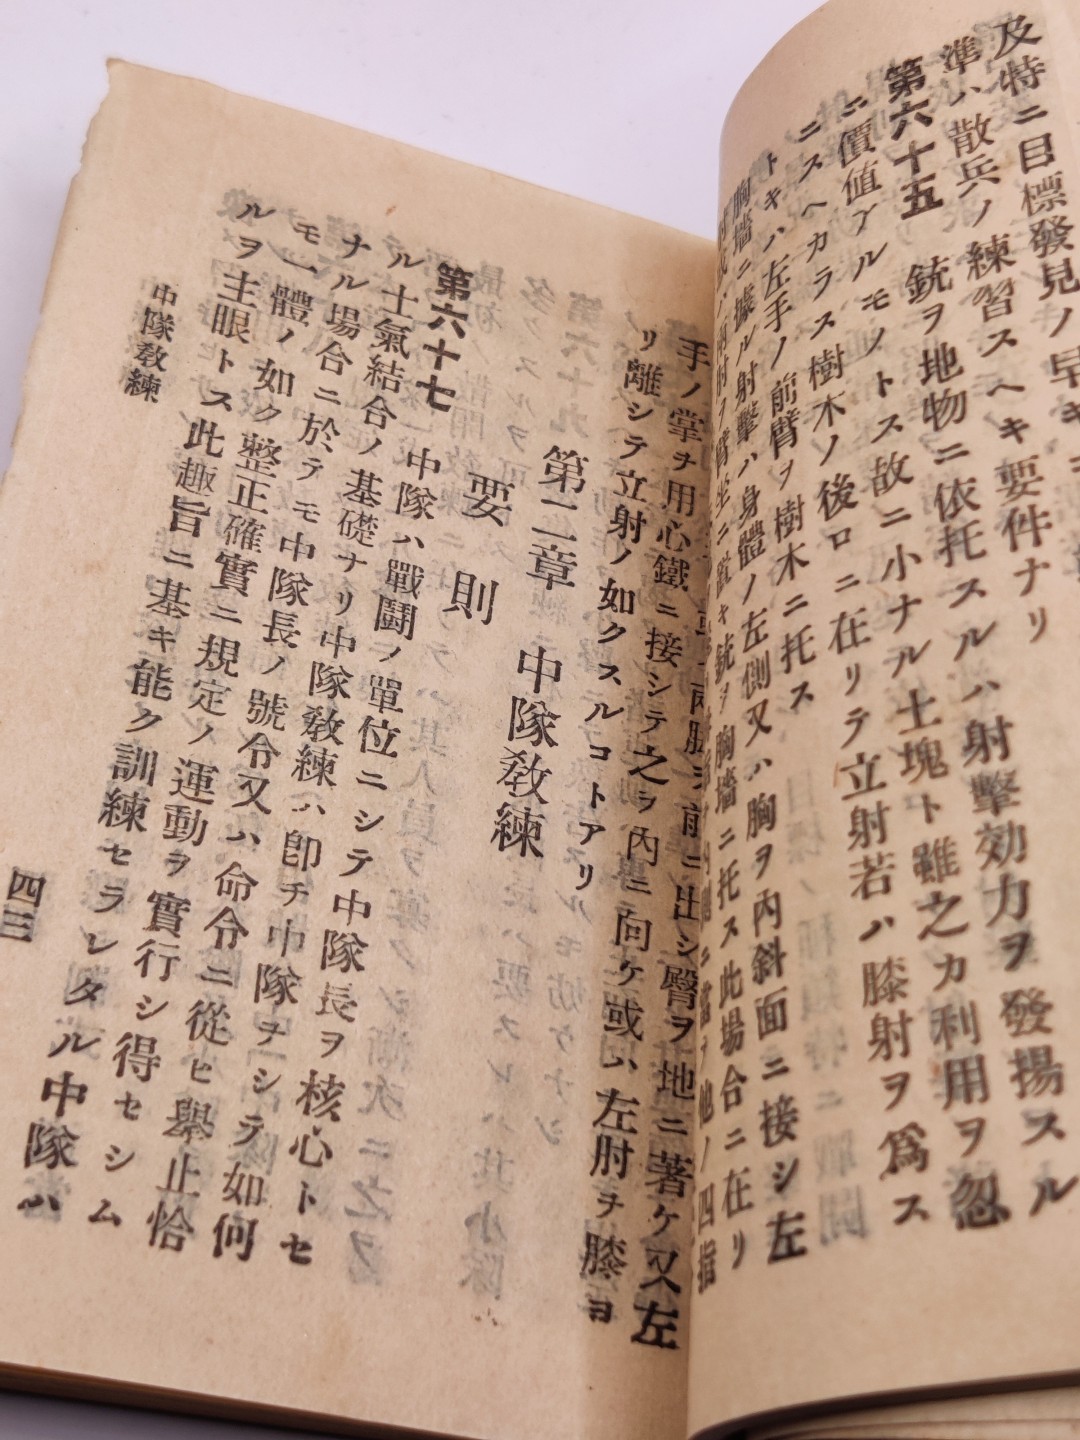 及特ニ目標發見ノ早キ
準ハ散兵ノ練習スヘキ要件ナリ
第六十五 銃ヲ地物ニ依托スルハ射擊効力ヲ發揚スル
ニ價値アルモノトス故ニ小ナル土塊ト雖之カ利用ヲ忽
ニスヘカラス樹木ノ後ロニ在リテ立射若ハ膝射ヲ爲ス
トキハ左手ノ前臂ヲ樹木ニ托ス
胸墻ニ據ル射擊ハ身體ノ左側又ハ胸ヲ內斜面ニ接シ左
銃ヲ胸墻ニ托ス此場合ニ在リ
ノ四指
前ニ出シ臀ヲ地ニ著ケ又左
手ノ掌ヲ用心鐵ニ接シテ之ヲ內ニ向ケ或ハ左肘ヲ膝ヨ
リ離シテ立射ノ如クスルコトアリ
第二章 中隊敎練
要則
第六十七 中隊ハ戰鬪ノ單位ニシテ中隊長ヲ核心トセ
ル士氣結合ノ基礎ナリ中隊敎練ハ卽チ中隊ヲシテ如何
ナル場合ニ於テモ中隊長ノ號令又ハ命令ニ從ヒ擧止恰
モ一體ノ如ク整正確實ニ規定ノ運動ヲ實行シ得セシム
ルヲ主眼トス此趣旨ニ基キ能ク訓練セラレタル中隊ハ
中隊敎練
四三